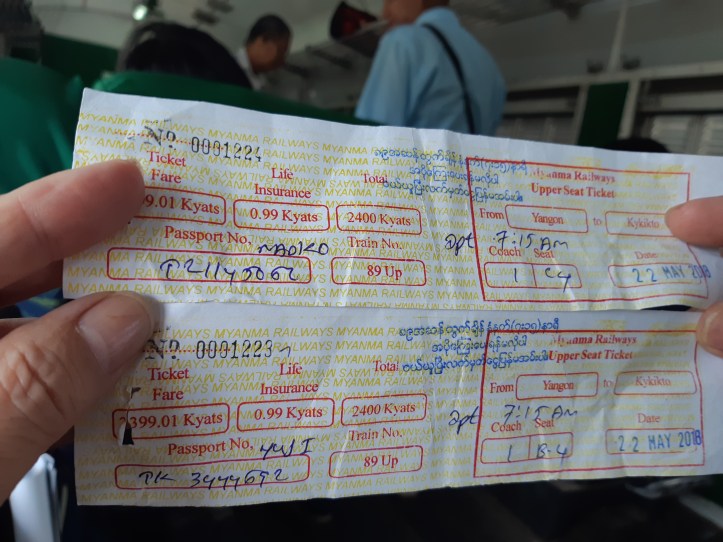 No. 0001224
Ticket Fare
Life Insurance
Total
9.01 Kyats
0.99 Kyats
2400 Kyats
Passport No. NAOKO
Train No.
89 Up
Myanma Railways
Upper Seat Ticket
From Yangon to Kyikto
dpt 7:15 Am
Coach Seat
Date
1 C4
22 MAY 2018
No. 0001223
Ticket Fare
Life Insurance
Total
2399.01 Kyats
0.99 Kyats
2400 Kyats
Passport No. YUJI
Train No.
TK 3444692
89 Up
Myanma Railways
Upper Seat Ticket
From Yangon to Kyikto
dpt 7:15 Am
Coach Seat
Date
1 B-4
22 MAY 2018